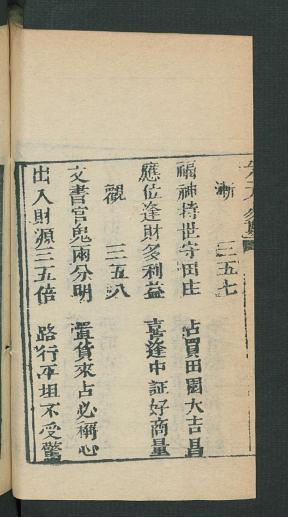 漸　三五七
福神持世守田庄　占買田園大吉昌
應位逢財多利益　喜逢中証好商量
觀　三五八
文書官鬼兩分明　置貨來占必稱心
出入財源三五倍　路行平坦不受驚